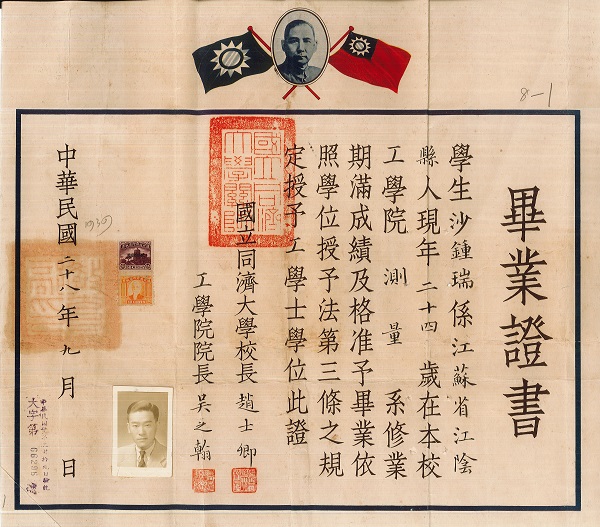 畢業證書
學生沙鍾瑞係江蘇省江陰
縣人現年二十四歲在本校
工學院測量系修業
期滿成績及格准予畢業依
照學位授予法第三條之規
定授予工學士學位此證
國立同濟大學校長趙士卿
工學院院長吳之翰
中華民國二十八年九月日
國立同濟
大學關防
大字第66285號
8-1